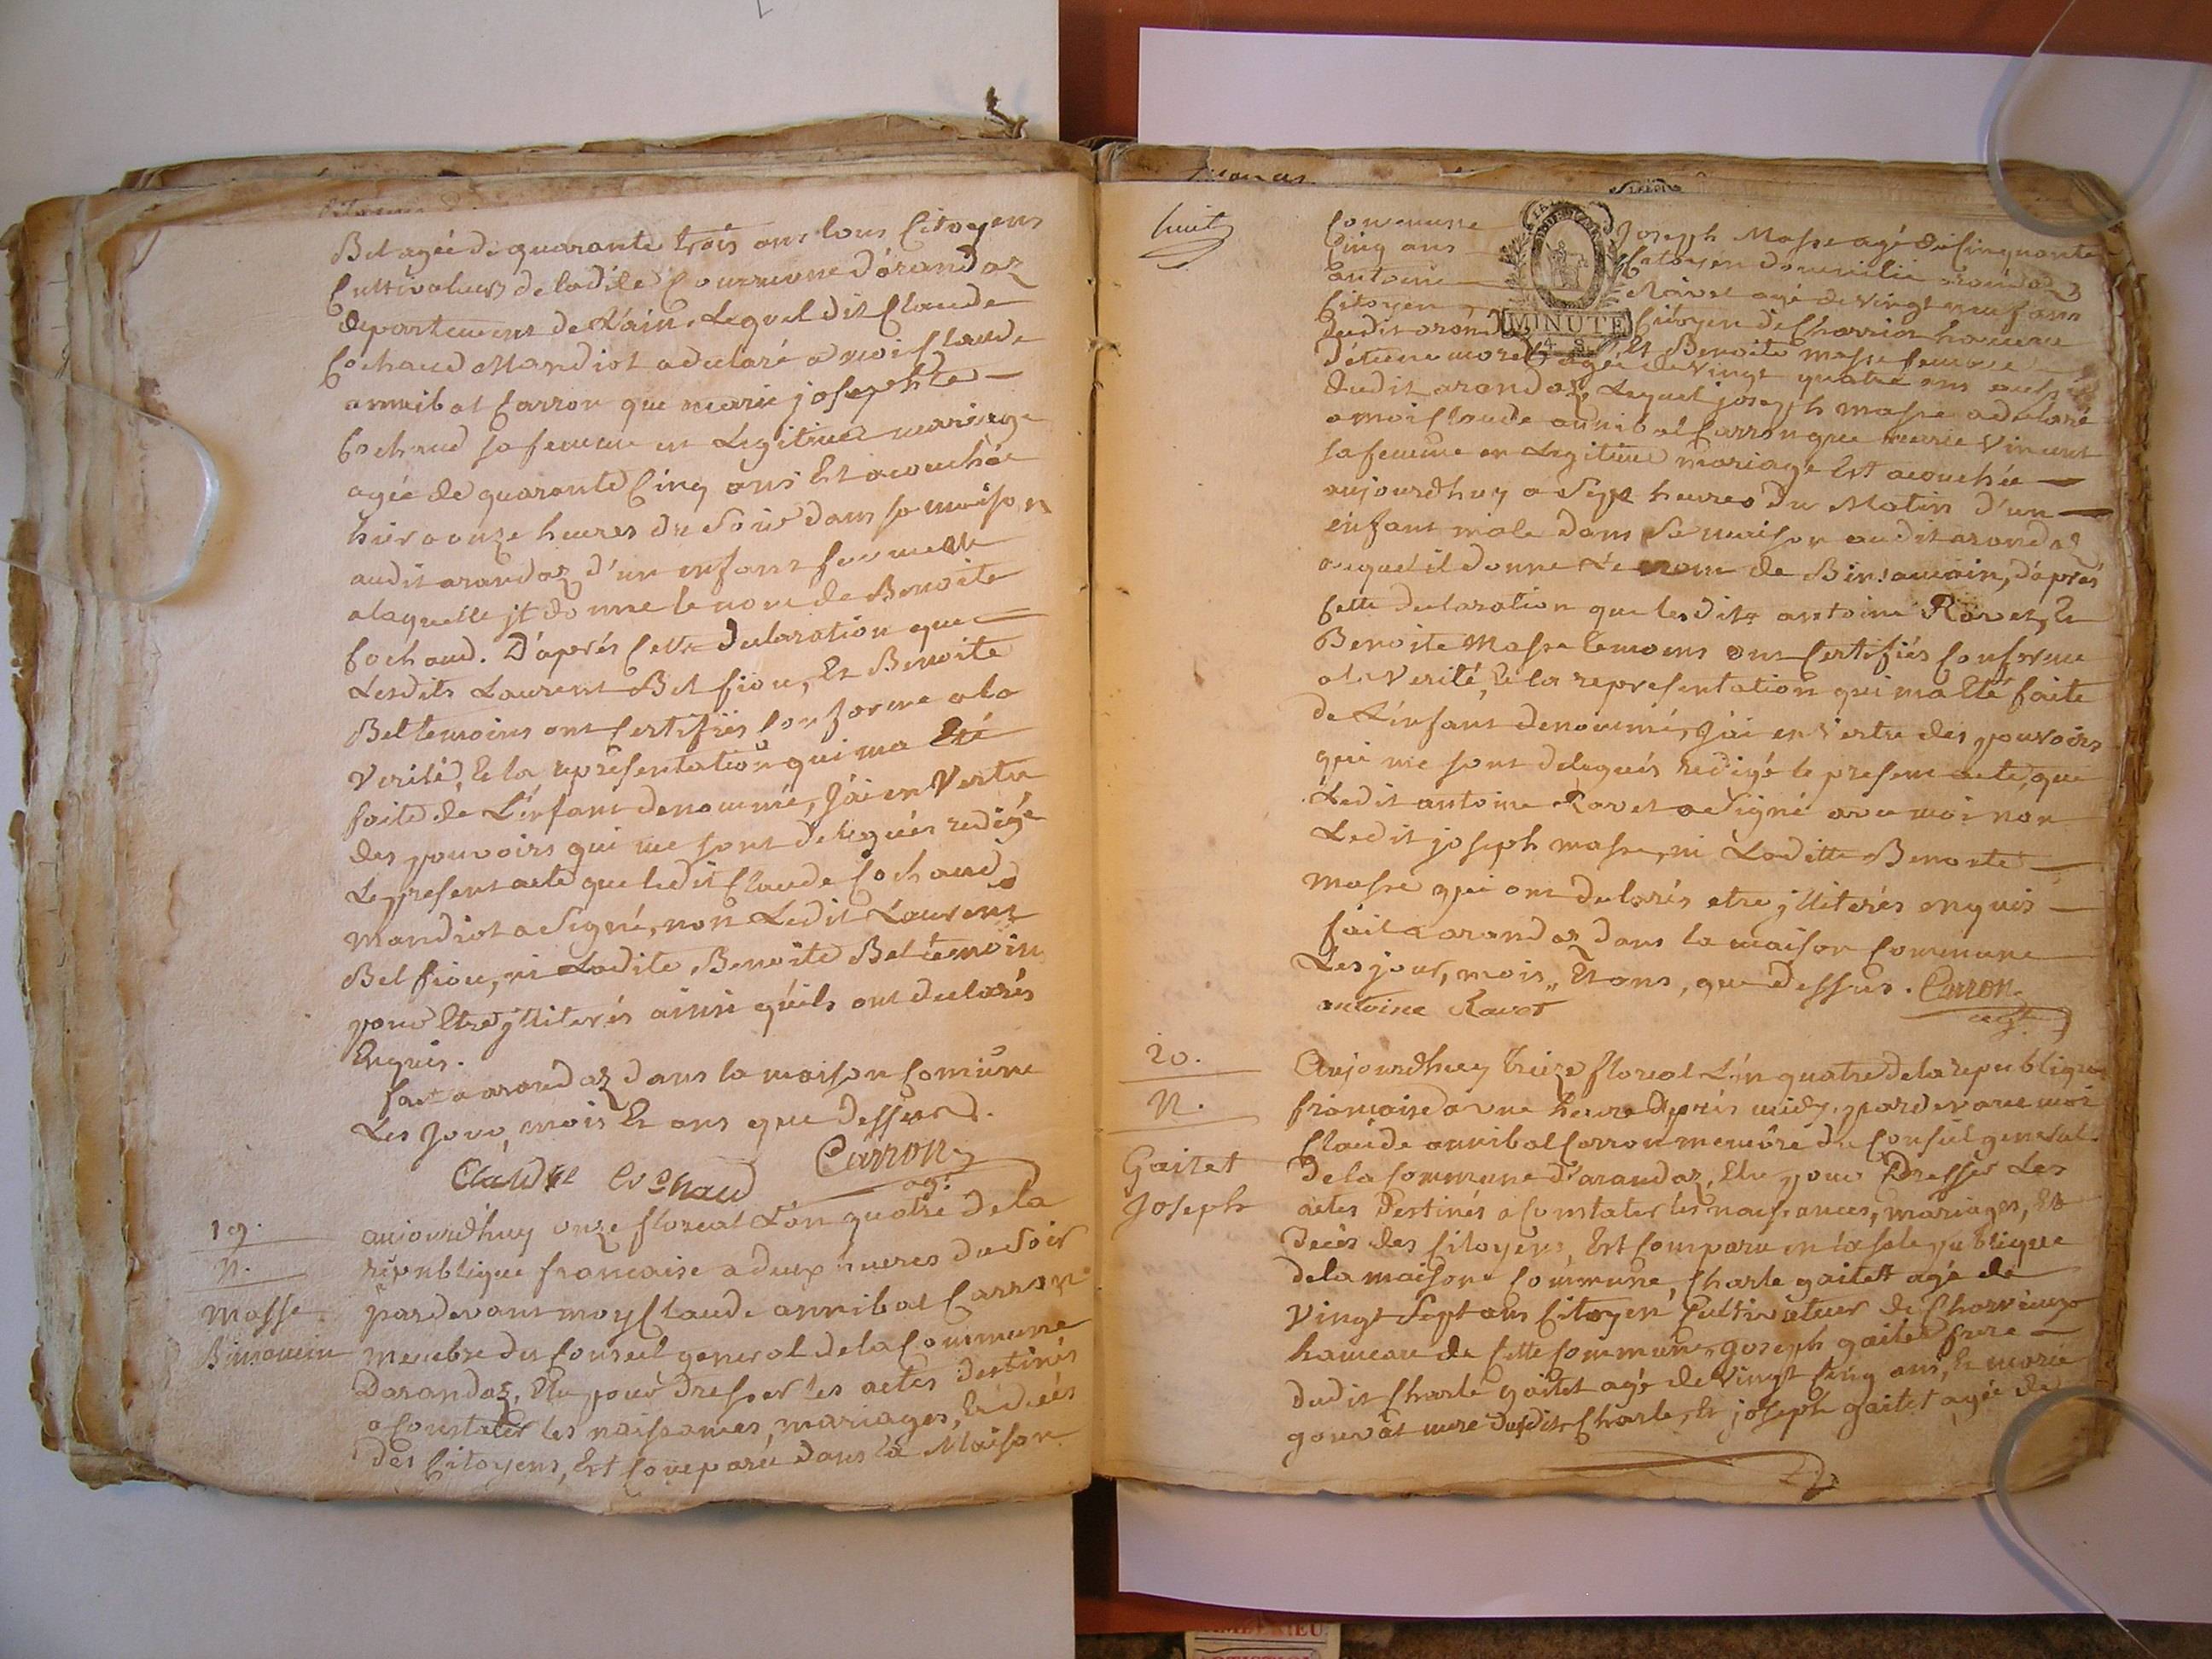 Bel agée de quarante trois ans tous Citoyens
Cultivateurs de ladite Commune d'arandaz
departement de L'ain. Lequel dit Claude
Cochaud Mandiot a declaré a moi Claude
annibal Carron que marie josephte
Cochaud sa femme en Legitime mariage
agée de quarante Cinq ans Est acouchée
hier a onze heures du Soir dans sa maison
audit arandaz d'un enfant femelle
alaquelle jl donne le nom de Benoite
Cochaud. D'aprés Cette Declaration que
Lesdits Laurent Bel fiou, Et Benoite
Bel temoins ont Certifiés Conforme a la
Verité, Et la representation qui ma Eté
faite de L'enfant denommé, J'ai en Vertu
des pouvoirs qui me sont delegués redigé
Le present acte que ledit Claude Cochaud
mandiot a Signé, non Ledit Laurent
Bel fiou, ni Ladite Benoite Bel témoin
pour Etre jlliterés ainsi qu'ils ont declarés
Enquis.
fait a arandaz dans la maison Comune
Les Jour, mois Et ans que Dessus.
Claude Cochaud Carron
agt
19.
n.
Masse
aujourd'huy onze floreal L'an quatre de la
republique francaise a deux heures du Soir
pardevant moy Claude annibal Carron
membre du Conseil general de la Commune
Darandaz, Elu pour dresser les actes destinés
a Constater les naissances, mariages, Et decés
des Citoyens, Est Comparu dans la Maison
huit
Commune Joseph Masse agé de Cinquante
Cinq ans Citoyen domicilié arandaz
antoine Ravet agé de vingt neuf ans
Citoyen Citoyen de Charvieux hameau
dudit arandaz Et Benoite masse femme
d'étienne morel agée de vingt quatre ans aussi
dudit arandaz, Lequel joseph masse a declaré
a moi Claude annibal Carron que marie Vincent
sa femme en Legitime mariage Est acouchée
aujourdhuy a Sept heures du Matin d'un
enfant male dans Sa maison audit arandaz
auquel il donne Le nom de, d'aprés
Cette declaration que lesdits antoine Ravet, Et
Benoite Masse temoins ont Certifiés Conforme
a la Verité, Et la representation qui ma Eté faite
de L'enfant denommé, J'ai en Vertu des pouvoirs
qui me sont delegués redigé le present acte, que
Ledit antoine Ravet a Signé avec moi non
Ledit joseph masse, ni Ladite Benoite
Masse qui ont declarés etre jlliterés enquis
fait a arandaz dans la maison Commune
Les jour, mois, Et ans, que Dessus. Carron
antoine Ravet agt
MINUTE
20.
N.
Gaitet
Joseph
Aujourdhuy treize floreal L'an quatre de la republique
francaise a une heure Aprés midy, pardevant moi
Claude annibal Carron membre du Conseil general
De la Commune d'arandaz, Elu pour Dresser Les
actes Destinés a Constater les naissances, mariages, Et
Decès des Citoyens, Est Comparu en la sale publique
de la maison Commune, Charle gaitet agé de
Vingt Sept ans Citoyen Cultivateur de Charvieux
hameau de Cette Commune, Joseph gaitet frere
dudit Charle gaitet agé de Vingt Cinq ans, Et marie
gouvat mere dudit Charle, Et joseph gaitet agée de